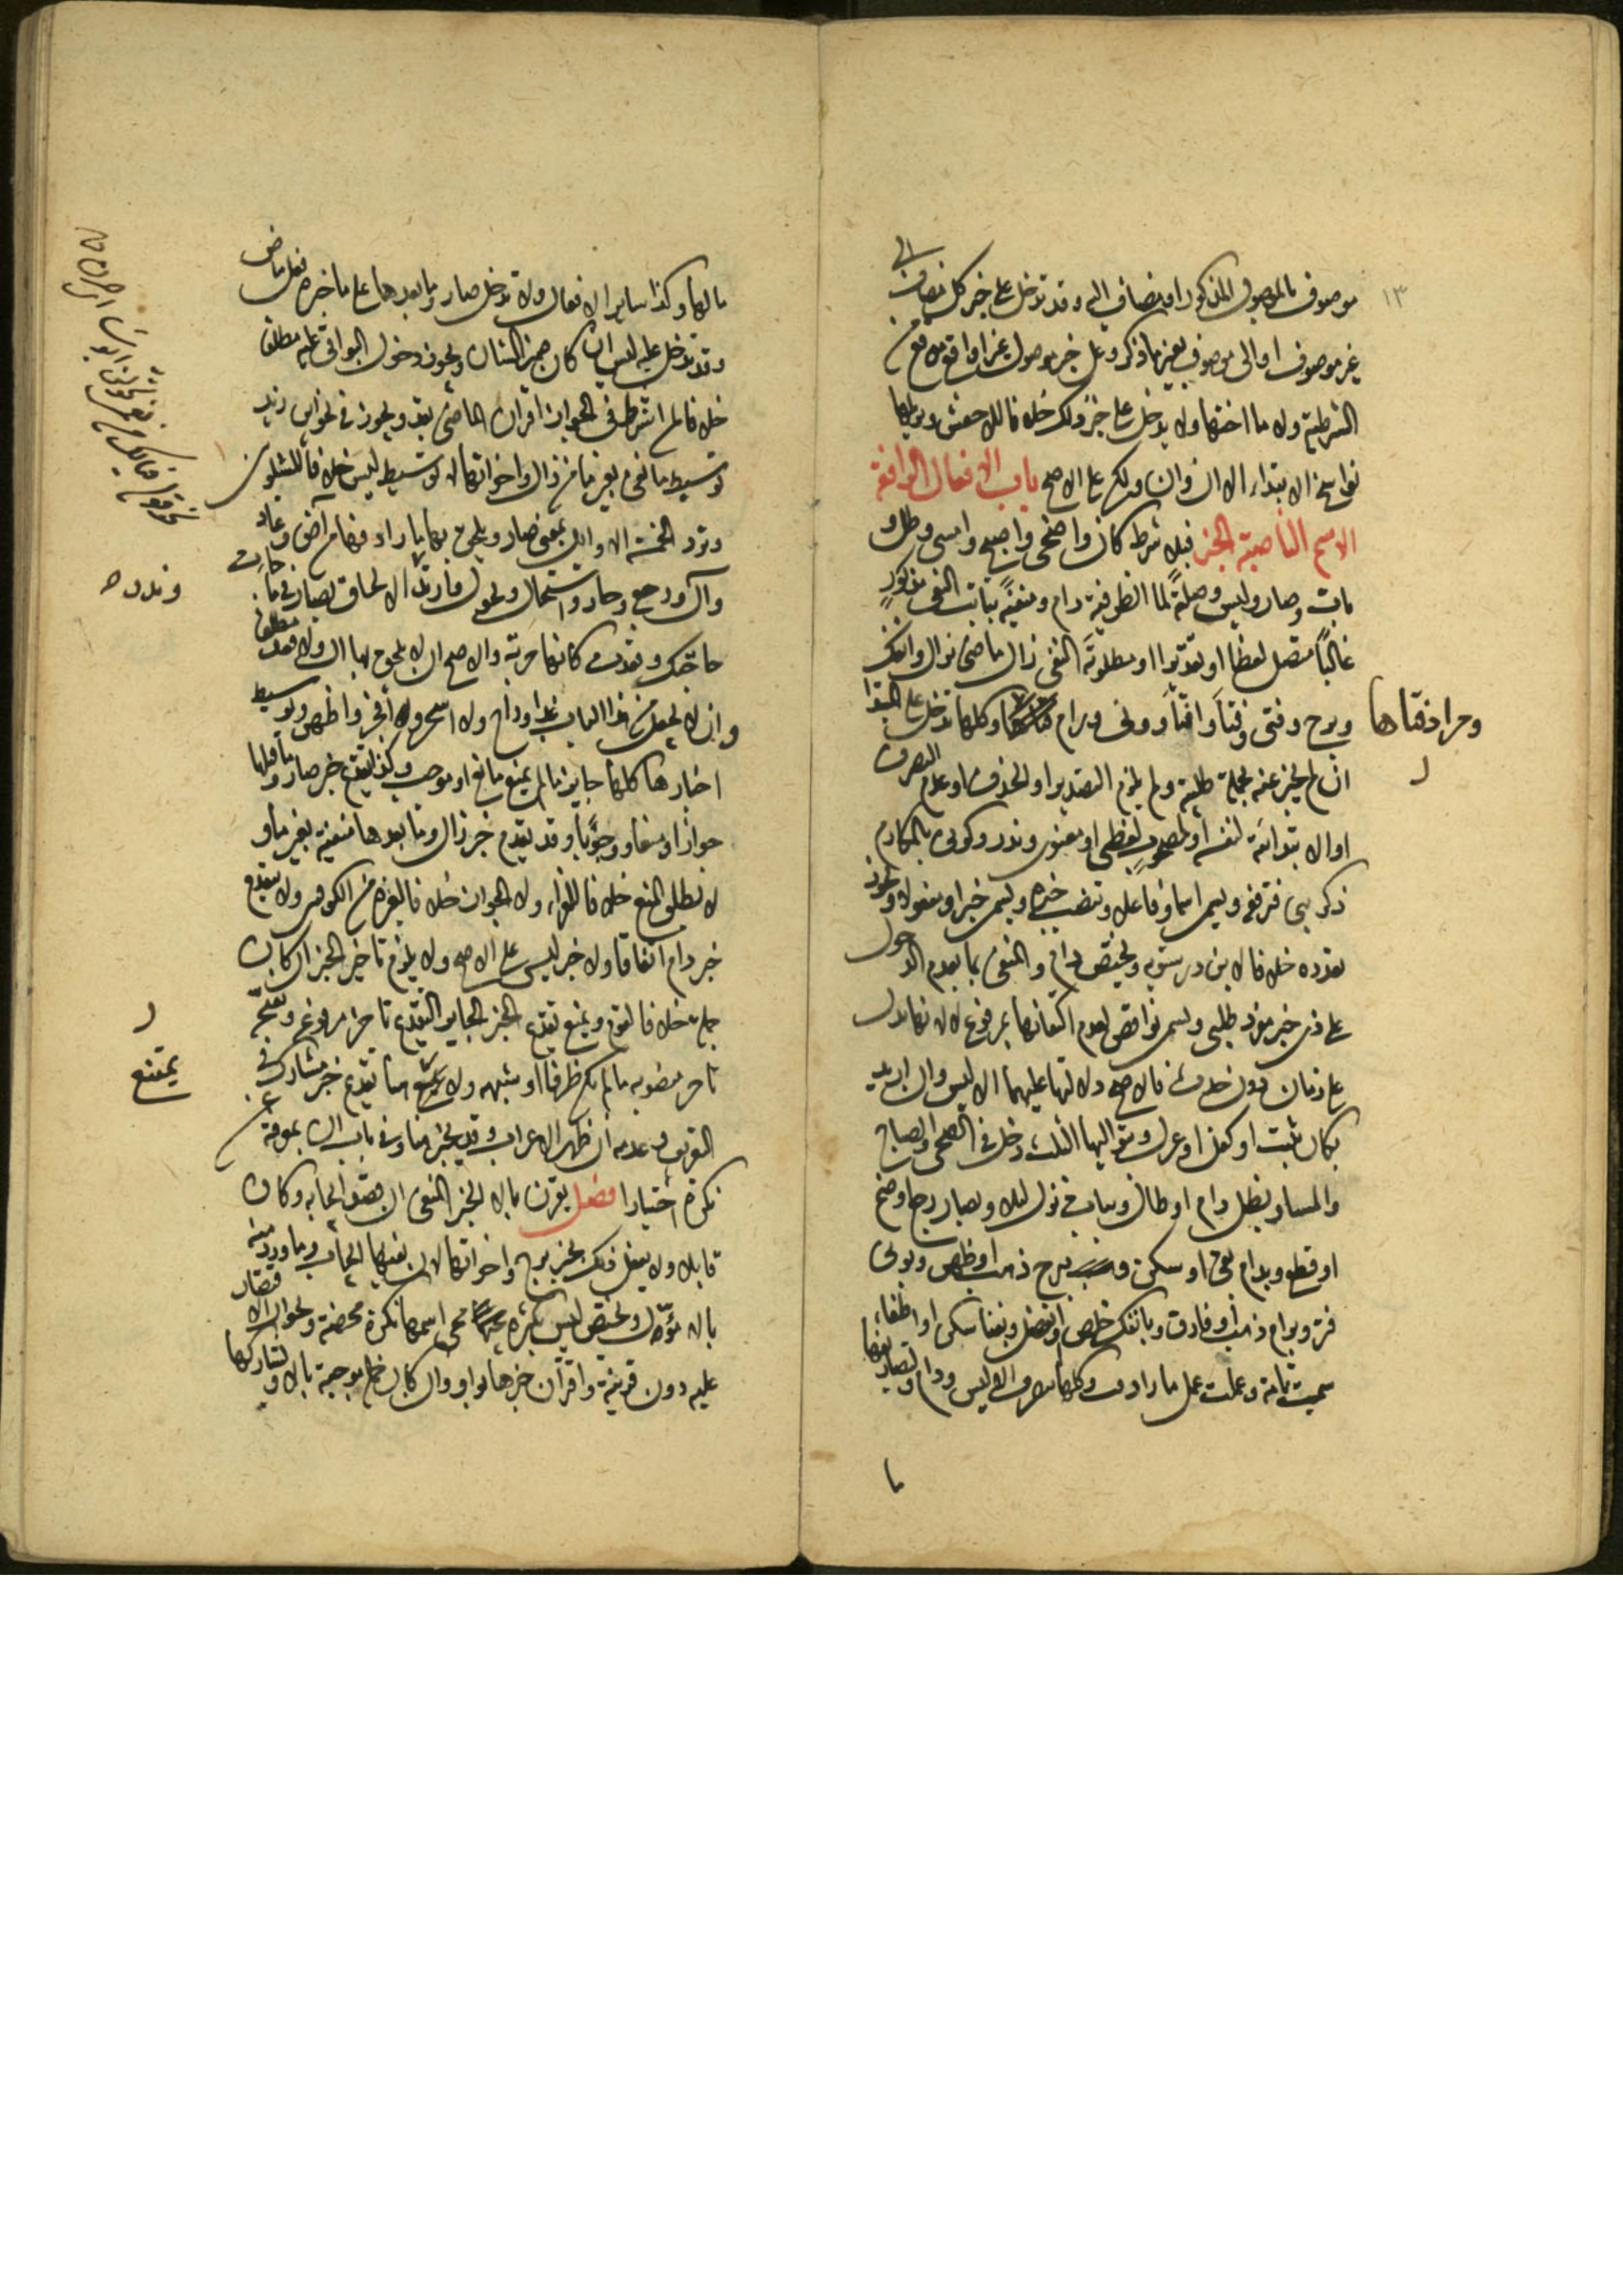 ١٣
موصوف بالموصول المذكور او مضاف اليه وقد تدخل على خبر كل مضاف الى
غير موصوف او الى موصوف بغير ما ذكر وعلى خبر موصول غير واقع موقع من
الشرطية ولا ما اختها ولا يدخل على خبر ذلك خلافا للاخفش ويزيلها
نواسخ الابتداء الا ان وان ولكن على الاصح باب الافعال الرافعة
الاسم الناصبة الخبر فبلا شرط كان واضحى واصبح وامسى وظل و
بات وصار وليس وصلة لما الظرفية دام ومنفية بثابت النفى مذكور
غالبا متصل لفظا او تقديرا او مطلوبة النفى زال ماضى يزال وانفك
وبرح وفتئ وفتأ وافتأ وونى ورام وكلها تدخل على المبتدا
ومرادفتاها
ان لم يخبر عنه بجملة طلبية ولم يلزم التصدير او الحذف او عدم التصرف
او الابتدائية لنفسه او لمصحوب لفظى او معنوى وندر وكونى بالمكارم
ذكرينى فترفعه ويسمى اسما وفاعلا وتنصب خبره ويسمى خبرا ومفعولا ويجوز
تعدده خلافا لابن درستويه وتختص دام والمنفى بما بعدم الدخول
على ذى خبر مفرد طلبى وتسمى نواقص لعدم اكتفائها بمرفوع لا لانها تدل
على زمان دون حدث فالاصح دلالتها عليهما الا ليس وان اريد
بكان ثبت او كفل او غزل وبتواليها الثلث دخل فى الضحى والصباح
والمساء وبظل دام او طال وببات نزل ليلا وبصار رجع او ضم
او قطع وبدام بقى او سكن وببرح ذهب او ظهر وبونى
فتر وبرام ذهب او فارق وبانفك خلص او انفصل وبفتأ سكن او اطفأ
سميت تامة وعملت عمل ما رادفت وكلها تتصرف الا ليس ودام ولتصاريفها
ما
مالها وكذا ساير الافعال ولا تدخل صار وما بعدها على ما خبره فعل ماض
وقد تدخل عليه ليس ان كان ضمير الشان ويجوز دخول البواقى عليه مطلقا
خلافا لمن اشترط فى الجواز اقتران الماضى بقد ويجوز فى نحو اين زيد
توسيط ما نفى بغير ما من زال واخواتها لا توسيط ليس خلافا للشلوبين
وترد الخمسة الاوايل بمعنى صار ويلحق بها ما رادفها من آض وعاد
وآل ورجع وحار واستحال وتحول وارتد الالحاق بصار فى ما جاءت
وندر
حاجتك وقعدت كانها حربة والاصح ان لا يلحق بها آل ولا قعد مطلقا
وان لا يجعل من هذا الباب غدا وراح ولا اسحر ولا افجر واظهر وتوسيط
اخبارها كلها جايز ما لم يمنع مانع او موجب وكذا تقديم خبر صار وما قبلها
جوازا ومنعا ووجوبا وقد يقدم خبر زال وما بعدها منفية بغير ما و
لا يطلق المنع خلافا للفراء ولا الجواز خلافا لغيره من الكوفيين ولا يتقدم
خبر دام اتفاقا ولا خبر ليس على الاصح ولا يلزم تاخير الخبر ان كان
جملة خلافا لقوم ويمنع تقديم الخبر الجايز التقديم تاخر مرفوعه ويقبحه
تاخر منصوبه ما لم يكن ظرفا او شبهه ولا يمتنع هنا تقديم خبر مشارك فى
يمتنع
التعريف وعدمه ان ظهر الاعراب وقد يخبر هنا وفى باب ان بمعرفة عن
نكرة اختيارا فصل يقترن بالا الخبر المنفى ان قصد ايجابه وكان
قابلا ولا يفعل ذلك بخبر برح واخواتها لان نفيها ايجاب وما ورد منه
بالا مؤول وتختص ليس بكثرة مجى اسمها نكرة محضة وبجواز الاقتصار
عليه دون قرينة واقتران خبرها بواو وان كان جملة موجبة بالا وتشاركها